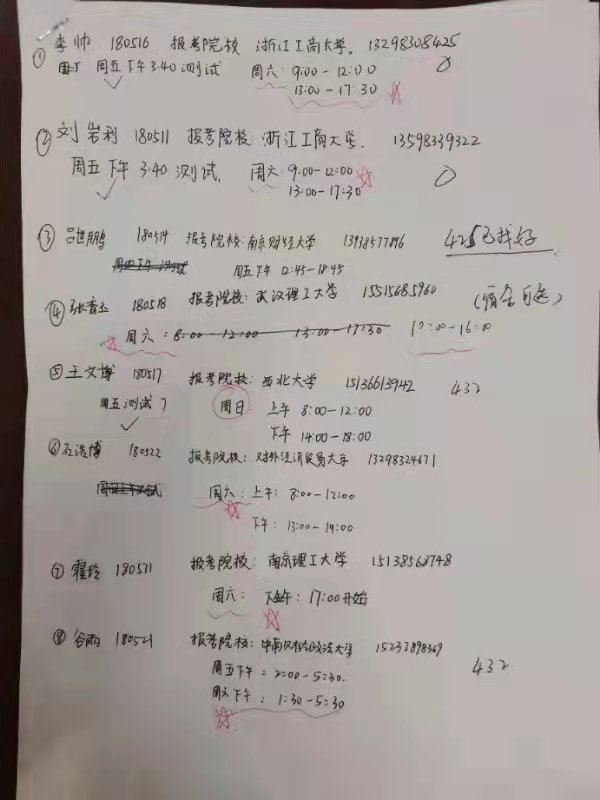 ① 李帅 180516 报考院校 浙江工商大学. 13298308425
周五下午 3:40 测试 周六: 9:00-12:00
13:00-17:30
② 刘岩利 180511 报考院校: 浙江工商大学. 13598339322
周五下午 3:40 测试. 周六: 9:00-12:00
13:00-17:30
③ 吕世鹏 180514 报考院校: 南京财经大学 13938577896 425已找好
周五下午 12:45-18:45
④ 180518 报考院校: 武汉理工大学 15515685960 (宿舍可选)
周六: 8:00-12:00 13:00-17:30 10:00-16:00
⑤ 王文博 180517 报考院校: 西北大学 15136613942 432
周五测试 周日: 上午 8:00-12:00
下午 14:00-18:00
⑥ 石浩博 180522 报考院校: 对外经济贸易大学 13298324671
周六: 上午: 8:00-12:00
下午: 13:00-19:00
⑦ 霍玲 180571 报考院校: 南京理工大学 15138568748
周六: 下午: 17:00开始
⑧ 谷雨 180521 报考院校: 中南财经政法大学 15237898369
周五下午: 2:00-5:30. 432
周六下午: 1:30-5:30